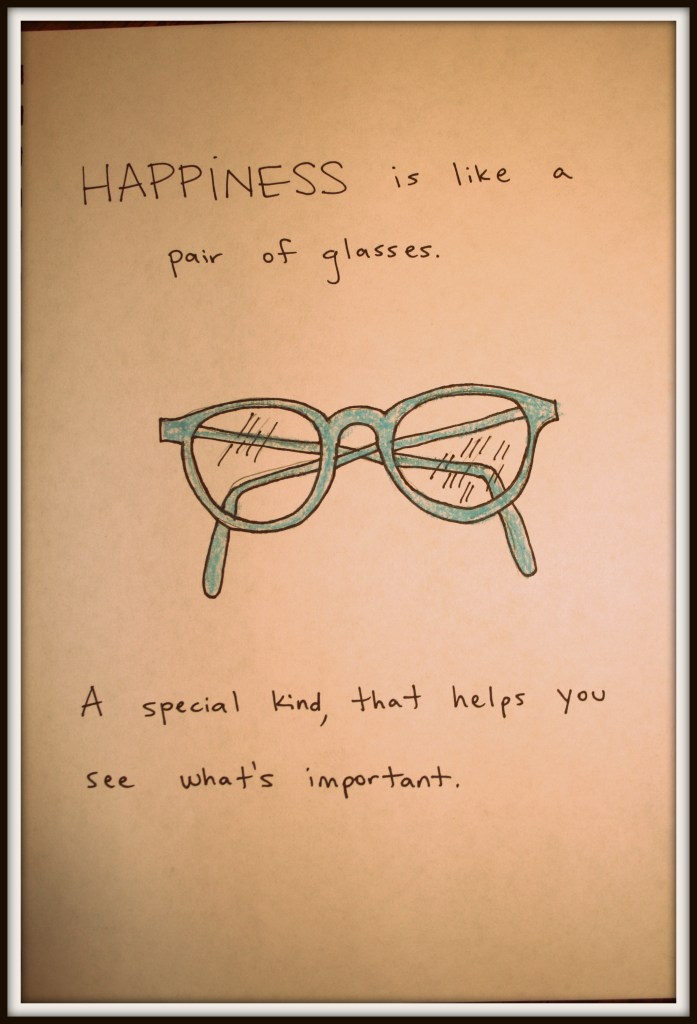 HAPPINESS is like a
pair of glasses.
A special kind, that helps you
see what's important.